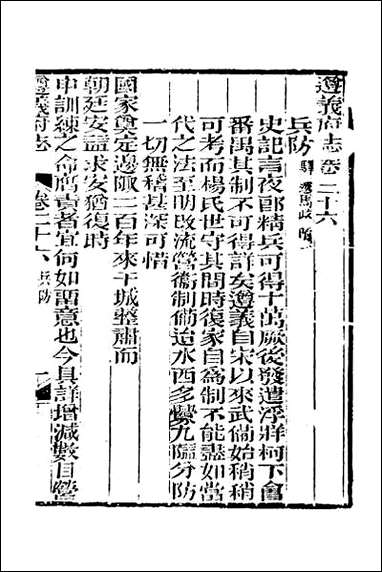 遵義府志卷二十六
兵防 驛遞馬政附
史記言夜郎精兵可得十萬厥後發遣浮牂柯下會
番禺其制不可得詳矣遵義自宋以來武備始稍稍
可考而楊氏世守其間時復家自為制不能盡如當
代之法至明改流營衞制備迨水西多釁九隘分防
一切無稽甚深可惜
國家奠定邊陬二百年來干城整肅而
朝廷安益求安猶復時
申訓練之命膺責者宜何如謂意也今具詳增減數目營
遵義府志 卷二十六 兵防 一